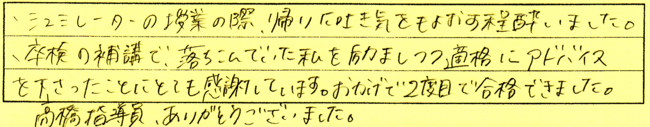 ・シュミレーターの授業の際、帰りに吐き気をもよおす程酔いました。
・卒検の補講で、落ちこんでいた私を励ましつつ適格にアドバイス
を下さったことにとても感謝しています。おかげで2度目で合格できました。
高橋指導員、ありがとうございました。